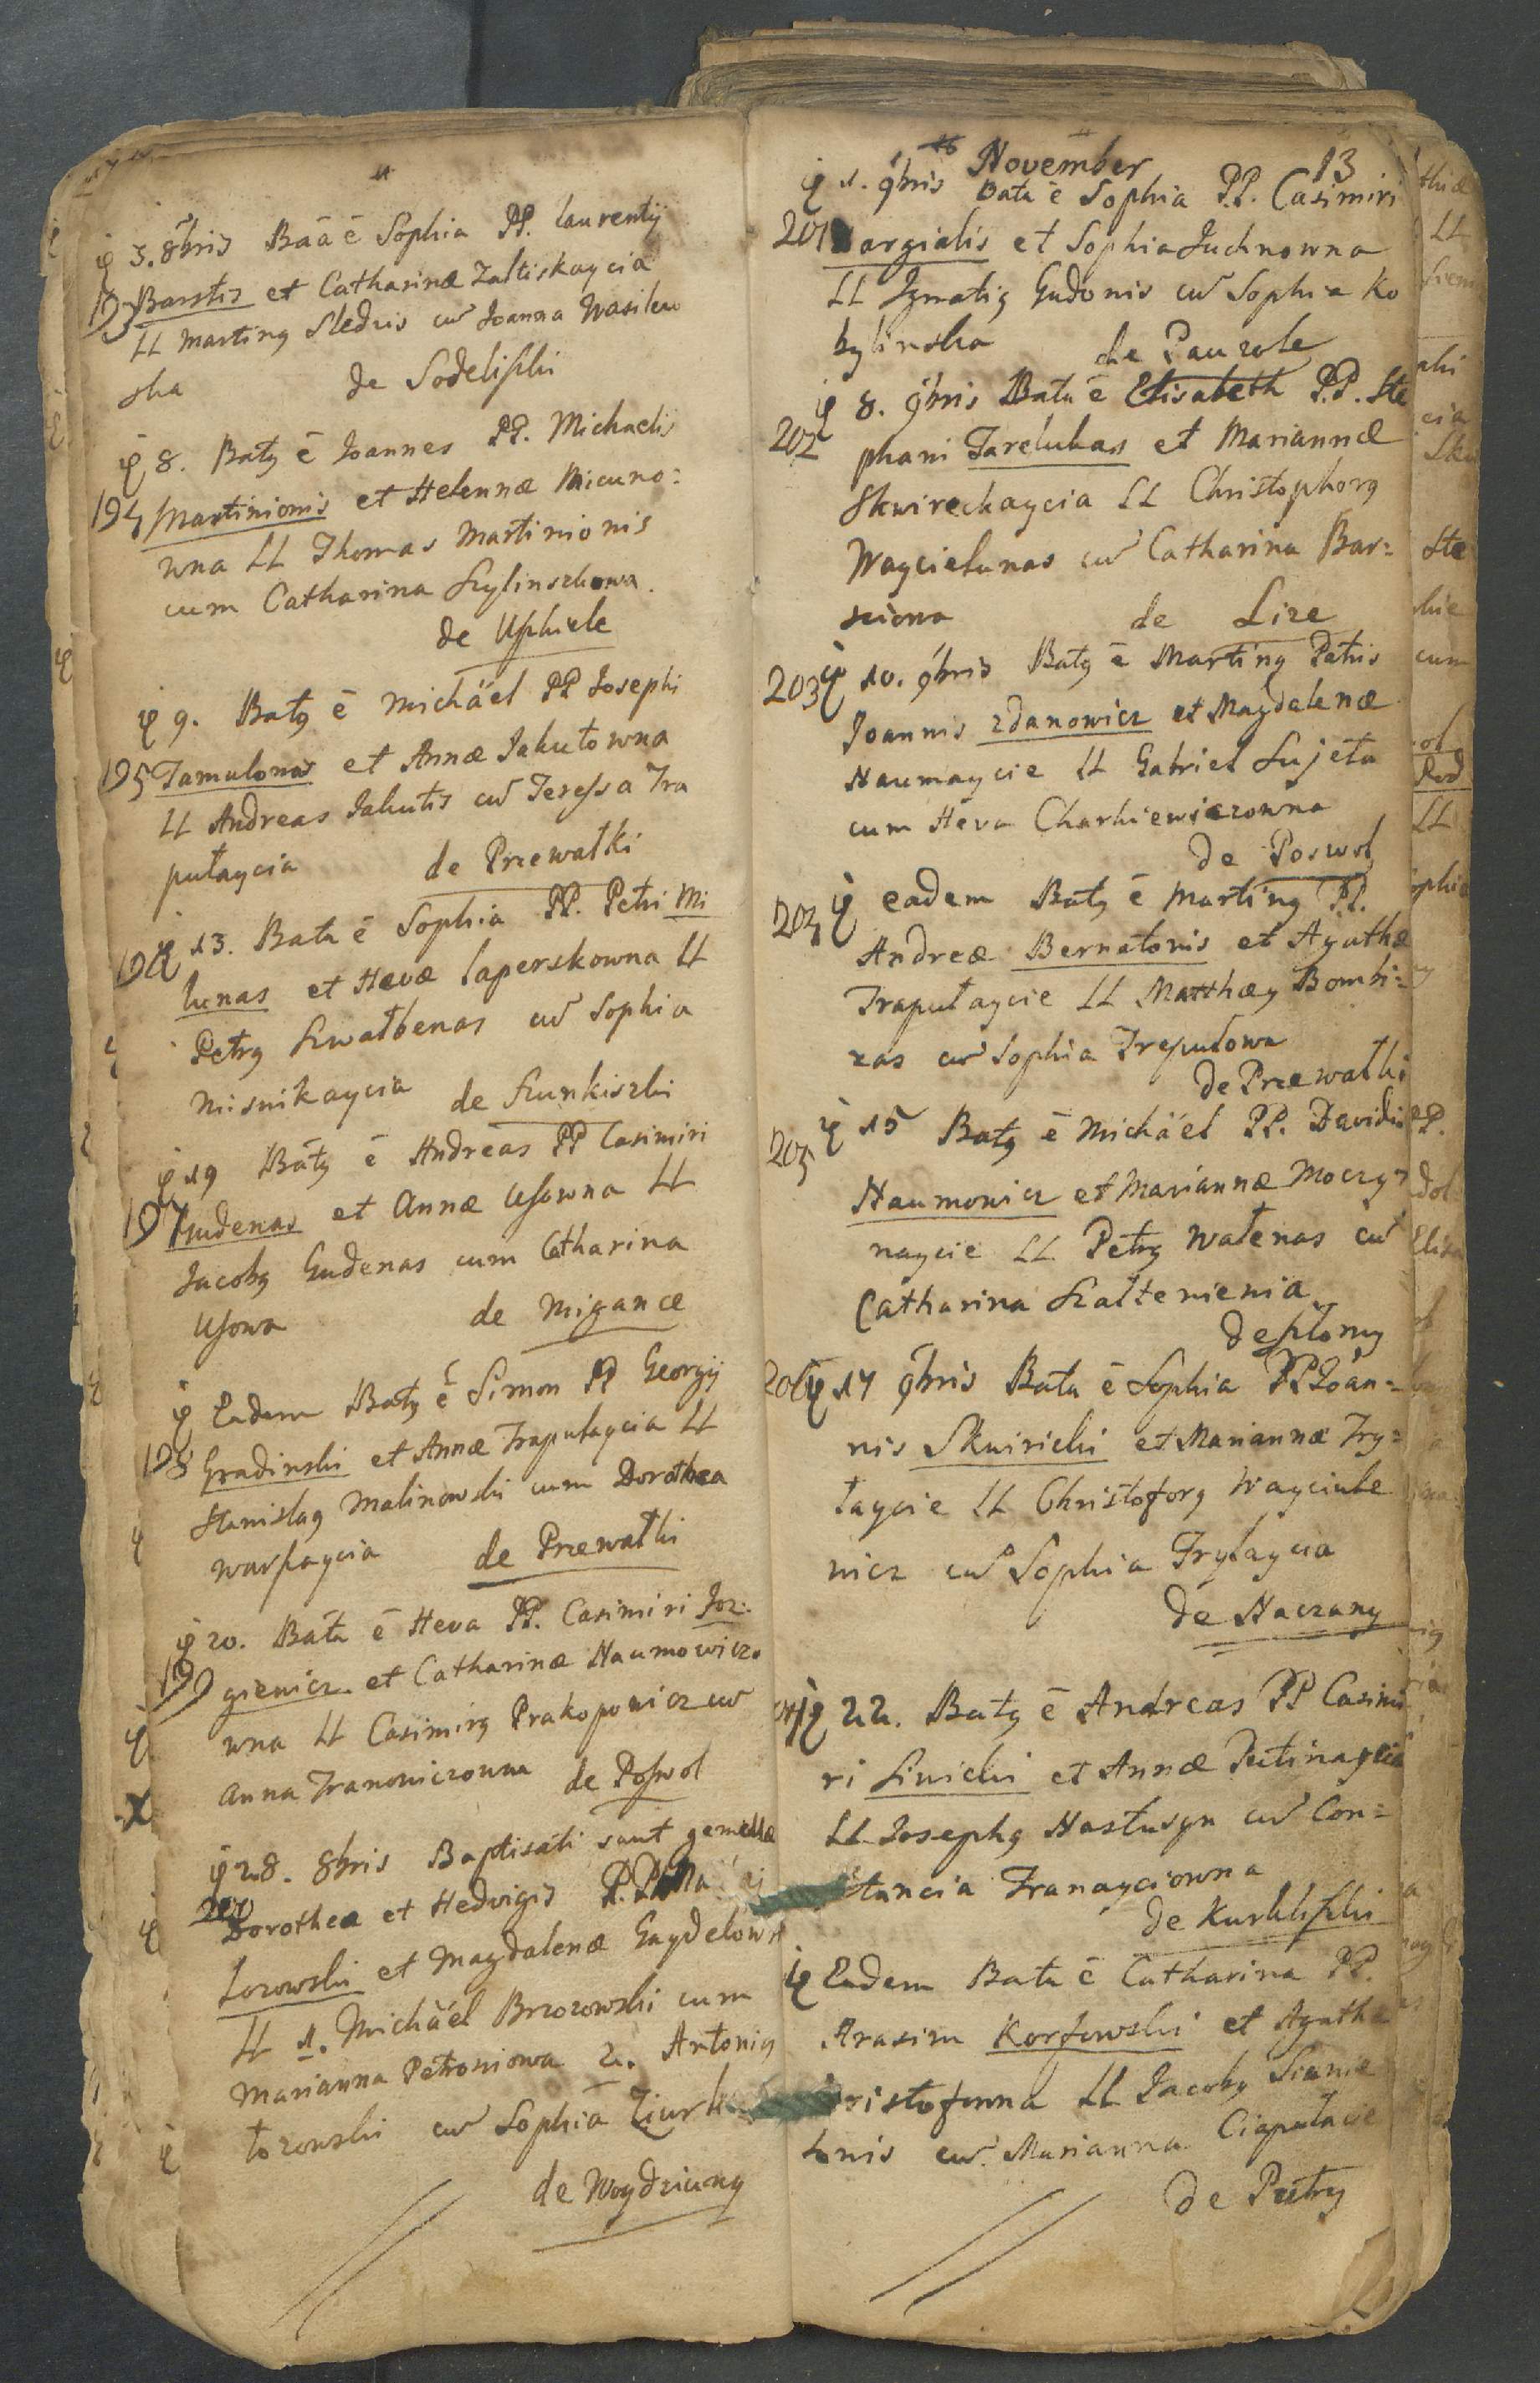 3. 8bris Baã ē Sophia PP. Laurentij
193 Barstis et Catharinæ Zaltiskaycia
LL Marting Sledzis cũ Joanna Wasilew
ska de Sodeliszki
8. Batg ē Joannes PP. Michaelis
194 Martinionis et Helennæ Micuno:
wna LL Thomas Martinionis
cum Catharina Szylinszkowa.
de Uszkiele
9. Batg ē Michäel PP Josephi
195 Tamulonas et Annæ Jakutowna
LL Andreas Jakutis cũ Teressa Tra
putaycia de Przewałki
13. Bata ē Sophia PP. Petri Mi
196 lunas et Hevæ Laperskowna LL
Petrg Szwatbenas cũ Sophia
Misnikaycia de Szunkiszki
19 Batg ē Andreas PP Casimiri
197 Gudenas et Annæ Usowna LL
Jacobg Gudenas cum Catharina
Usowa de Migance
Eadem Batg ē Simon PP Georgij
198 Gradinski et Annæ Traputaycia LL
Stanislag Malinowski cum Dorothea
Warszaycia de Przewałki
20. Bata ē Heva PP. Casimiri Joz:
199 gienicz et Catharinæ Naumowiczo
wna LL Casimirg Prakopowicz cũ
Anna Franowiczowna de Poswol
X
28. 8bris Baptisati sunt gemellæ
200 Dorothea et Hedvigis P.P.
Lozowski et Magdalenæ Gaydelow
LL 1. Michäel Brzozowski cum
Marianna Petroniowa 2. Antonig
Lozowski cũ Sophia
de Woydziuny
November 13
1. 9bris Bata ē Sophia PP. Casimiri
201 argialis et Sophia Juchnowna
LL Ignatig Gudonis cũ Sophia Ko
bylinska de Pauzole
8. 9bris Bata ē Elisabeth P.P. Ste
202 phani Tarelukas et Mariannæ
Skwireckaycia LL Christophorg
Waycielunas cũ Catharina Bar:
sciowa de Lize
203 10. 9bris Batg ē Marting Patris
Joannis Zdanowicz et Magdalenæ
Naumaycie LL Gabriel Szujeta
cum Heva Charkiewiczowna
de Poswol
204 eadem Batg ē Marting PP.
Andreæ Bernatonis et Agathæ
Traputaycie LL Matthæg Bombi:
zas cũ Sophia Trepudowa
de Przewałki
205 15 Batg ē Michäel PP. Davidis
Naumowicz et Mariannæ Moczy:
naycie LL Petrg Watenas cũ
Catharina Szaltenienia
de Szłony
206 17 9bris Bata ē Sophia PP Joan:
nis Skwiricki et Mariannæ Try:
taycie LL Christoforg Wayciule
nicz cũ Sophia Trytaycia
de Naczany
22. Batg ē Andreas PP Casimi
ri Siwicki et Annæ Putinaycia
LL Josephg Nastusyn cũ Con:
stancia Franayciowna
de Kurkliszki
Eadem Bata ē Catharina PP.
Arasim Korsowski et Agatha
ristofowna LL Jacobg Sianie
lonis cũ Marianna Ciaputacie
de Putry